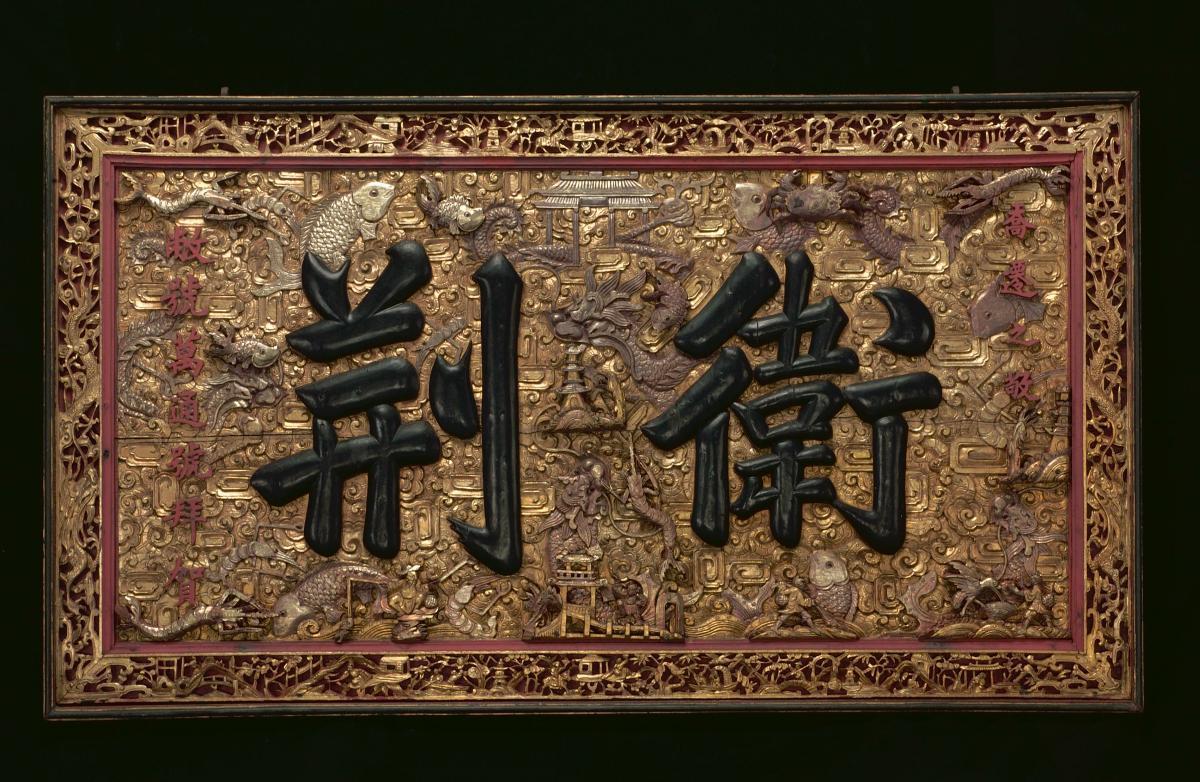 喬遷之敬
衛荆
敝號萬通號拜賀